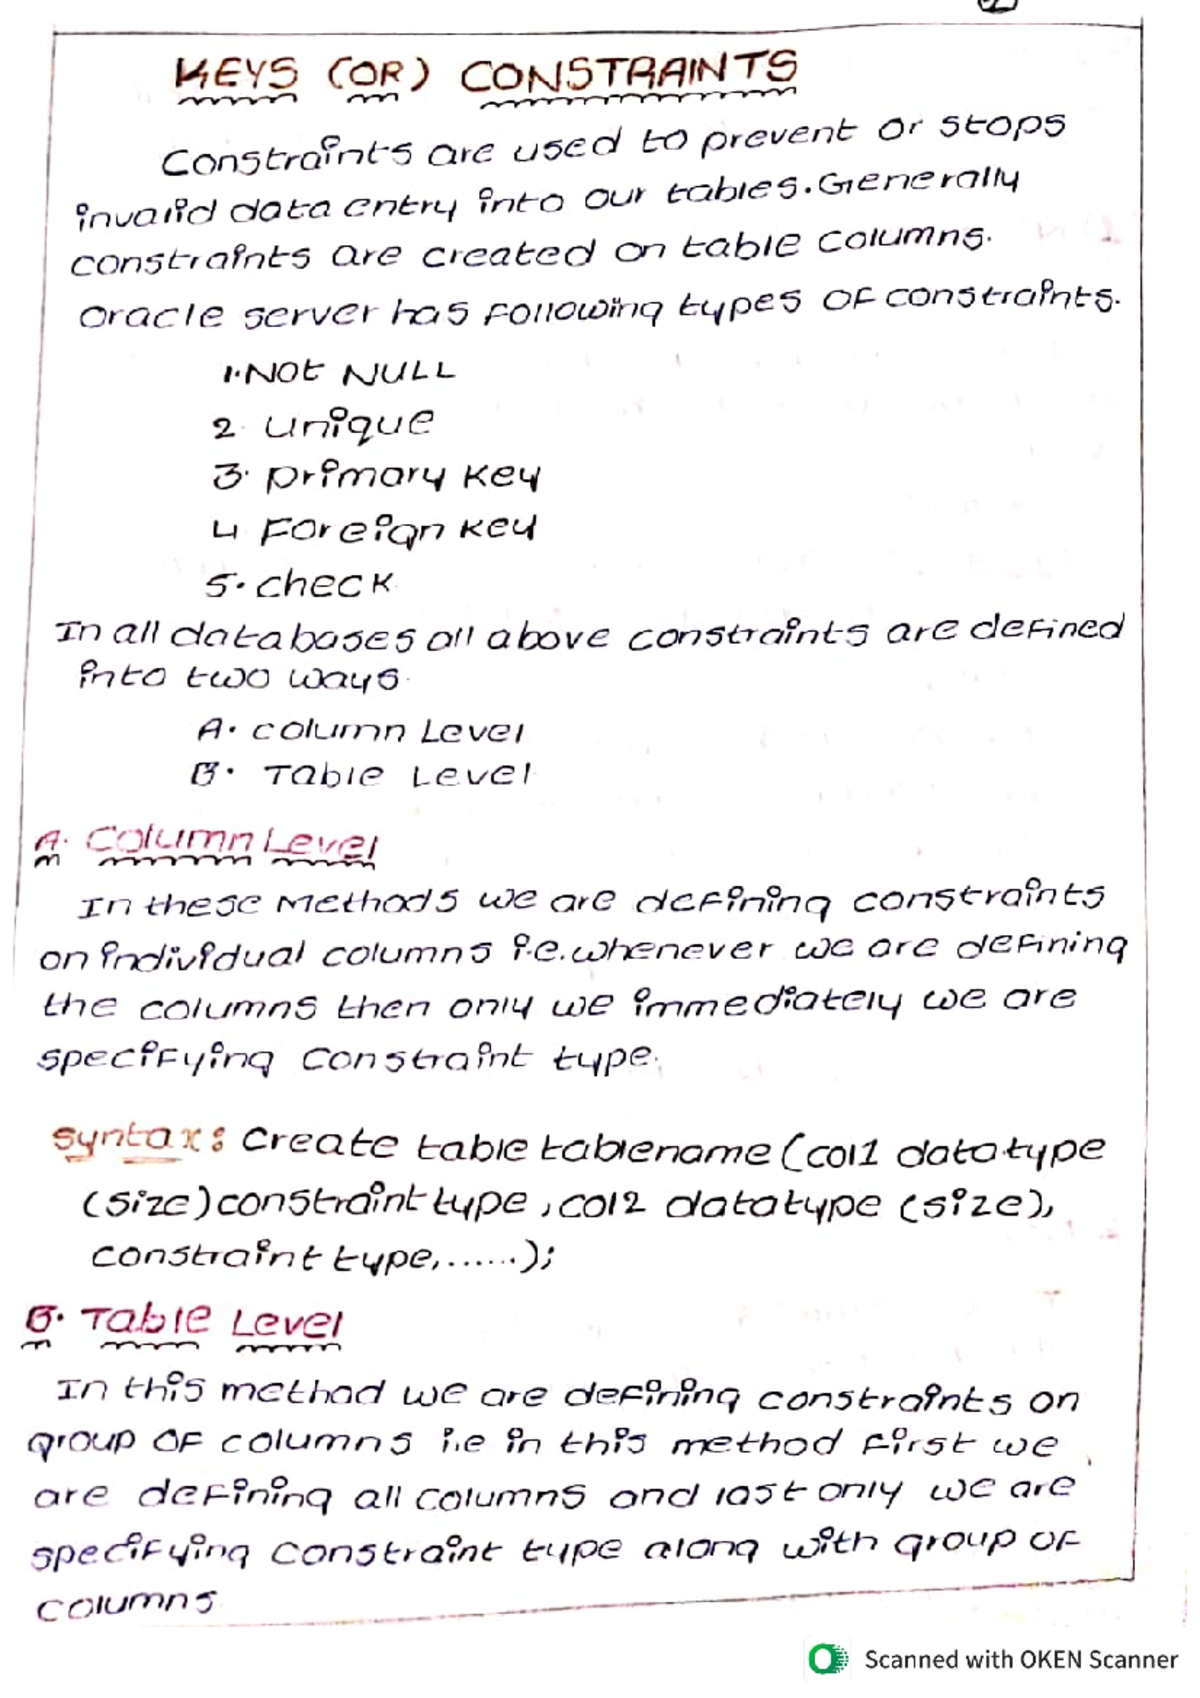 KEYS (OR) CONSTRAINTS
Constraints are used to prevent or stops
invalid data entry into our tables. Generally
constraints are created on table columns.
Oracle server has following types of constraints.
1. NOT NULL
2. unique
3. primary key
4 Foreign key
5. check
In all databases all above constraints are defined
into two ways.
A. column Level
B. Table Level
A. Column Level
In these methods we are defining constraints
on individual columns i.e. whenever we are defining
the columns then only we immediately we are
specifying constraint type.
syntax: Create table tablename (col1 datatype
(size) constraint type, col2 datatype (size),
constraint type,......);
B. Table Level
In this method we are defining constraints on
group of columns i.e in this method first we
are defining all columns and last only we are
specifying constraint type along with group of
columns
Scanned with OKEN Scanner